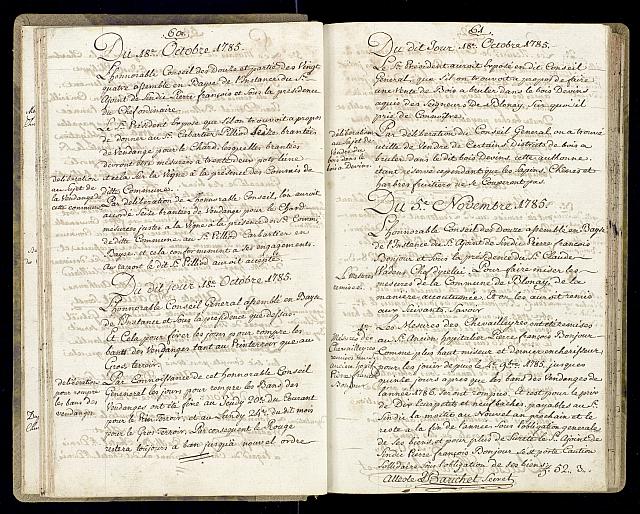 60.
Du 18e. Octobre 1785.
L'honnorable Conseil des Douze et partie des Vingt
quatre assemblé en Baye de l'instance du Sr.
Ajoint de Sindic Pierre françois et sous la presidence
du Chef ordinaire.
Le Sr. Président expose que s'il on trouvoit a propos
de donner au Sr. Cabartier Pilliod seize brantées
de Vendange pour le Chard, lesquelles brantées
devront être mesurées a trente deux pots l'une
et cela sur la Vigne a la présence des Commis de
ditte Commune.
Par délibération de L'honnorable Conseil, l'on auroit
acordé seize brantées de Vendange pour le Chard
mesurées juste a la Vigne a la présence des Sr. Commis
de ditte Commune au Sr. Pilliod Carbartier en
Baye, et cela conformement a ses engagements.
Au raport le dit Sr. Pilliod auroit accepté.
délibération
au sujet de
la Vendange de
cette commune
Du dit jour 18e. Octobre 1785.
L'honnorable Conseil Général assemblé en Baye
de l'instance et sous la présidence que dessus.
Et Cela pour fixer les jours pour rompre les
bants des Vendanges tant au Printerroir que au
Gros terroir.
Par Connoissance de cet honnorable Conseil
General les jours pour rompre les Bans des
Vendanges ont été fixé au Jeudy 20e. du Courant
pour le Prin Terroir, et au Lundy 24e. du dit mois
pour le Gros Terroir. Par consequent le Rouge
restera toujours a ban jusqu'a nouvel ordre
délibération
pour rompre
les bans des
vendanges
61.
Du dit Jour 18e. Octobre 1785.
Le Sr. Président auroit exposé en dit Conseil
Général, que s'il on trouvoit a propos de faire
une Vente de Bois a bruler dans le bois Devin
aquis des Seigneurs de Blonay, sur quoi il
prie de Connoître.
Par délibération du Conseil Général on a trouvé
utile de Vendre de Certains districts de bois a
bruler dans le dit bois Devins cette authonne,
étant reservé cependant que les sapins, Chênes et
harbres fruitiers ne se Couperont pas.
délibération
au sujet de
Vendre du
bois dans le
bois a Devin.
Du 5e. Novembre 1785.
L'honnorable Conseil des Douze assemblé en Baye
de l'instance du Sr. Ajoint de Sindic Pierre françois
Bonjour et sous la présidence du Sr. Claude
Bonjour Chef d'icellui. Pour faire miser les
mesures de la Commune de Blonay, de la
manière accoutumée. Et on les auroit remis
aux Suivants. Savoir
Les mesures
remises.
1o. Les Mesures des Chevalleyres ont été remises
au Sr. Ancien hopitalier Pierre françois Bonjour
Comme plus haut miseur et dernier encherisseur,
pour les jouir de puis le 4e. 9bre. 1785, jusques
quinze jours apres que les bans des Vendanges de
l'année 1786. seront rompus. et c'est pour le prix
de Dix Ecus petits et neuf baches, payables au Sr.
Sindic la moitié au Nouvel an prochain et le
reste a la fin de l'année sous l'obligation generale
de ses biens, et pour plus de Sureté le Sr. ajoint de
Sindic Pierre françois Bonjour se est porté Caution
Sollidaire sous l'obligation de ses biens.
52. 3.
Mesures des
Chevalleyres
Atteste D Barichet Secret